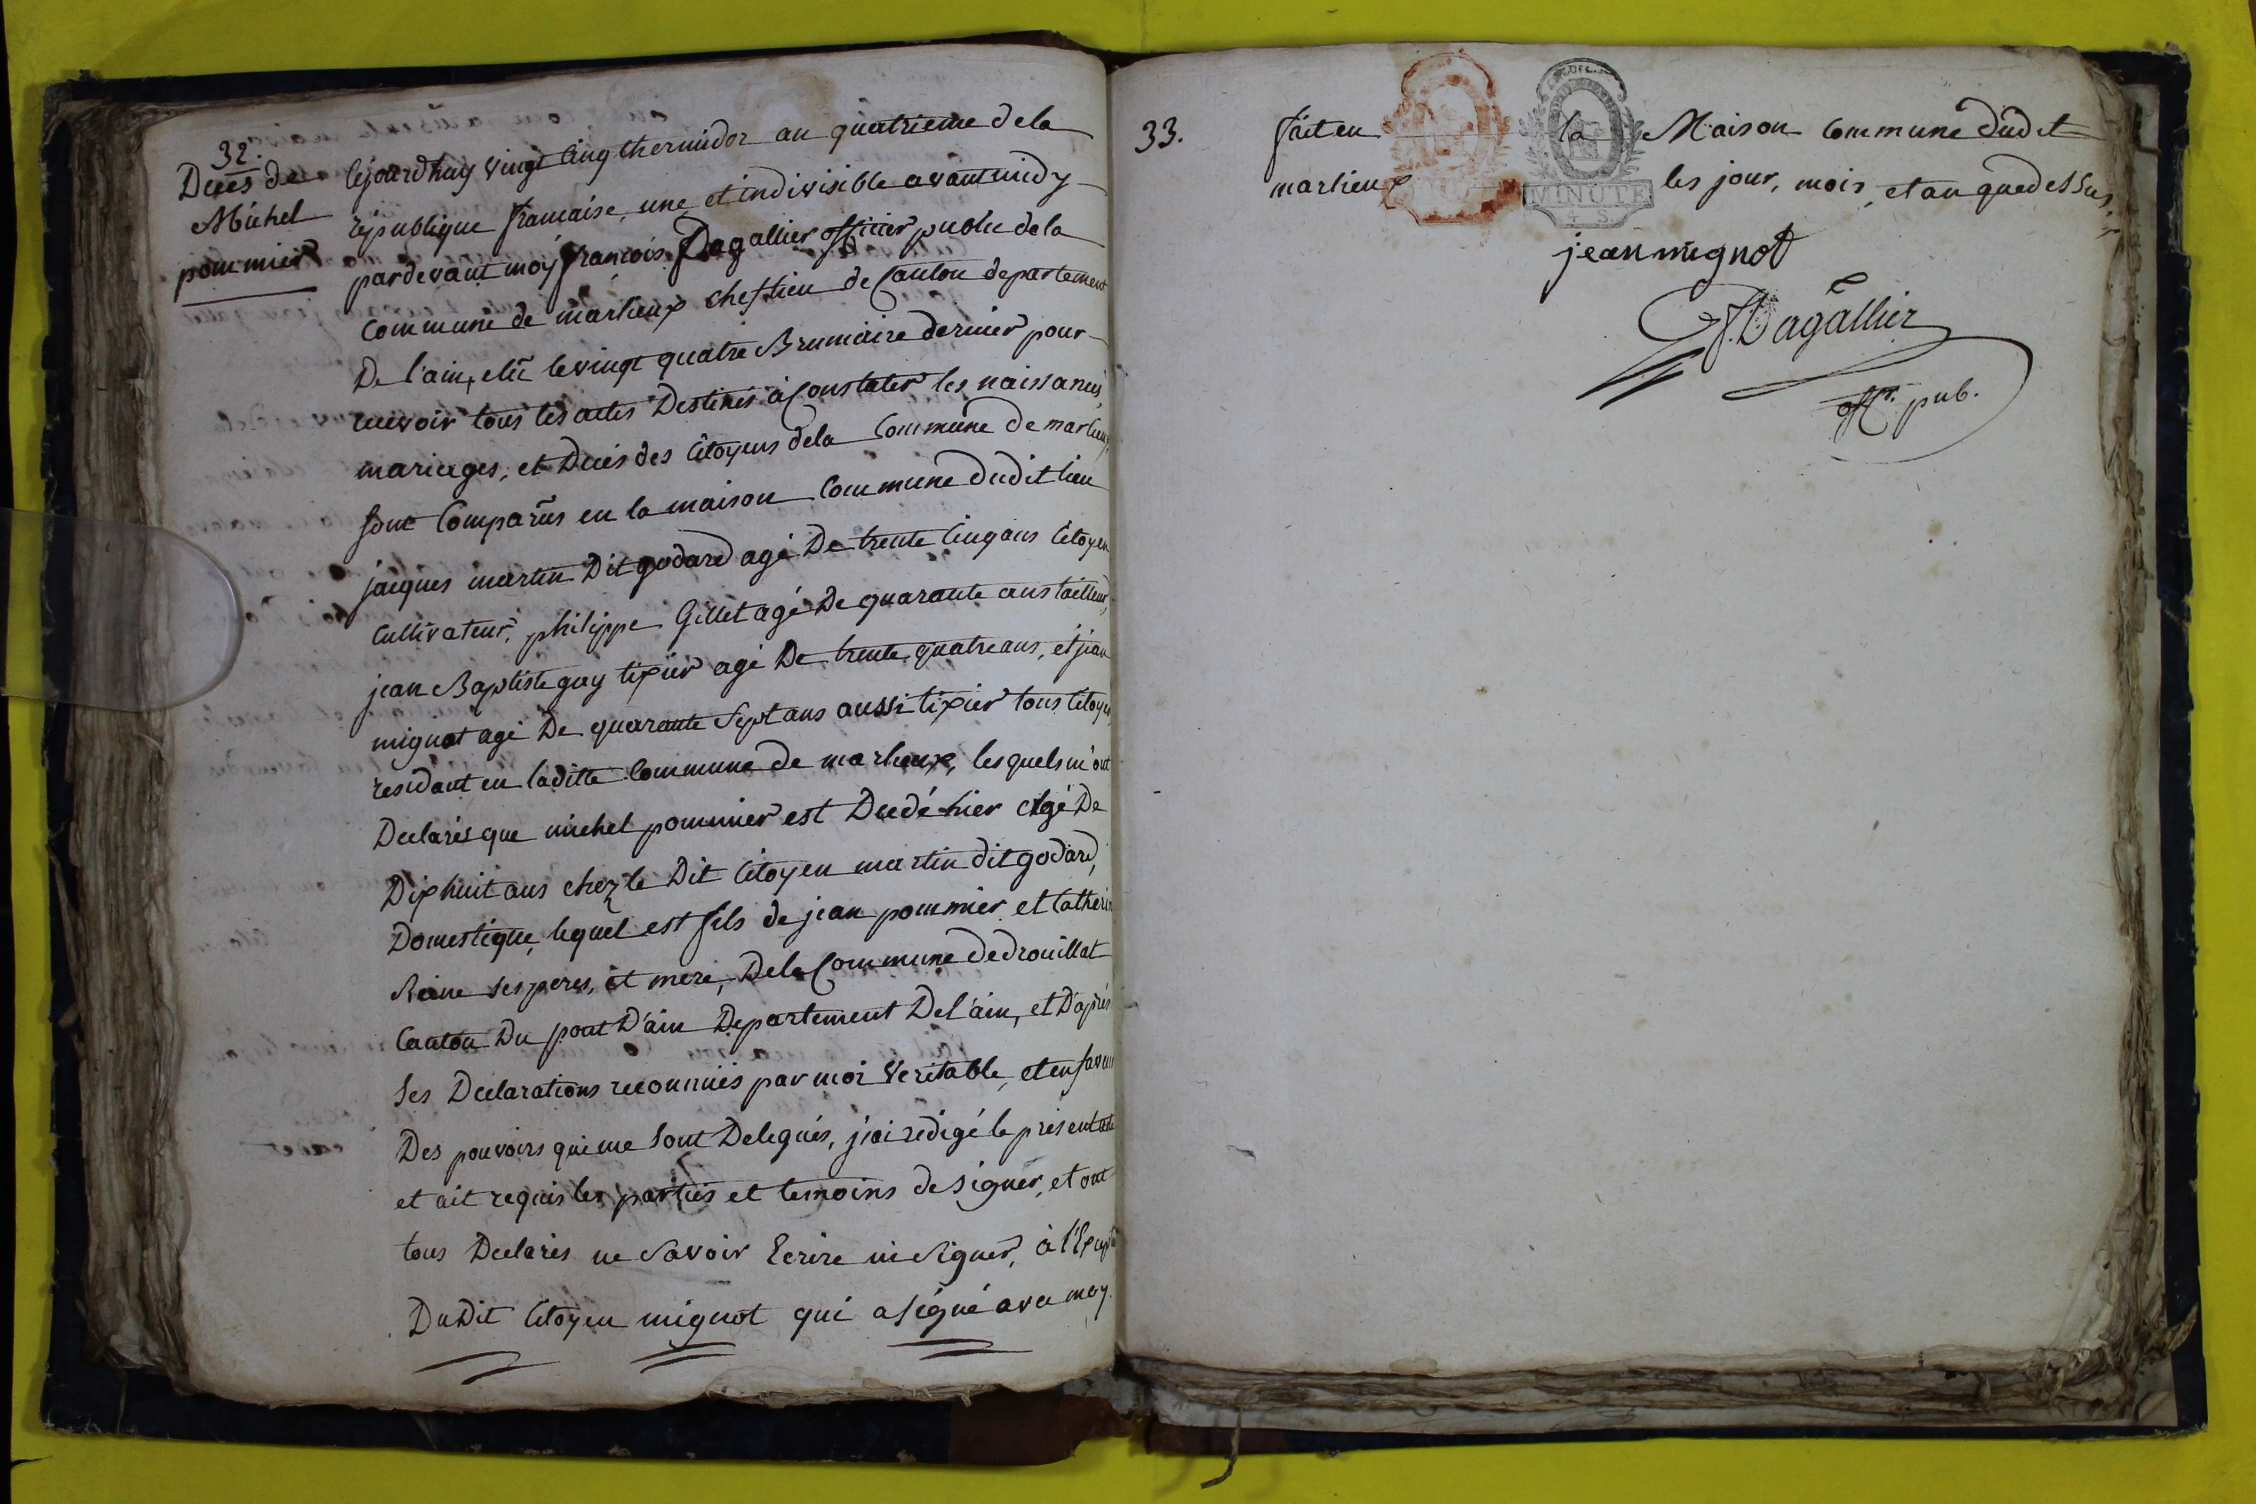 32.
Decès de
Michel
pommier
Cejourdhuy vingt Cinq thermidor an quatrieme dela
république francaise, une et indivisible avant midy
pardevant moy francois Dagallier officier public dela
Commune de marlieux cheflieu de Canton departement
De l'ain, elû le vingt quatre Brumaire dernier pour
recevoir tous les actes Destinés à Constater les naissances,
mariages, et Decés des Citoyens dela Commune de marlieux,
sont Comparûs en la maison Commune dudit lieu
jacques martin Dit godard agé De trente Cinq ans Citoyen
Cultivateur, philippe Gillet agé De quarante ans tailleur,
jean Baptiste guy tixier agé De trente quatre ans, et jean
mignot agé De quarante Sept ans aussi tixier tous Citoyens
residant en laditte Commune de marlieux, lesquels m'ont
Declarés que michel pommier est Decedé hier Agé De
Dixhuit ans chez le Dit Citoyen martin dit godard,
Domestique, lequel est fils de jean pommier et Catherine
Reine ses peres, et mere, Dela Commune de drouillat
Canton Du pont D'ain Departement De l'ain, et D'après
Ses Declarations reconnües par moi Veritable, et en faveur
Des pouvoirs qui me sont Delegués, j'ai redigé le présent acte
et ait requis les parties et temoins de signer, et ont
tous Declarés ne Savoir Ecrire ni Signer, à l'Exception
DuDit Citoyen mignot qui a signé avec moy.
33.
fait en la Maison Commune dudit
marlieux les jour, mois, et an que dessus.
MINUTE
4 S.
jean mignot
F. Dagallier
offr. pub.